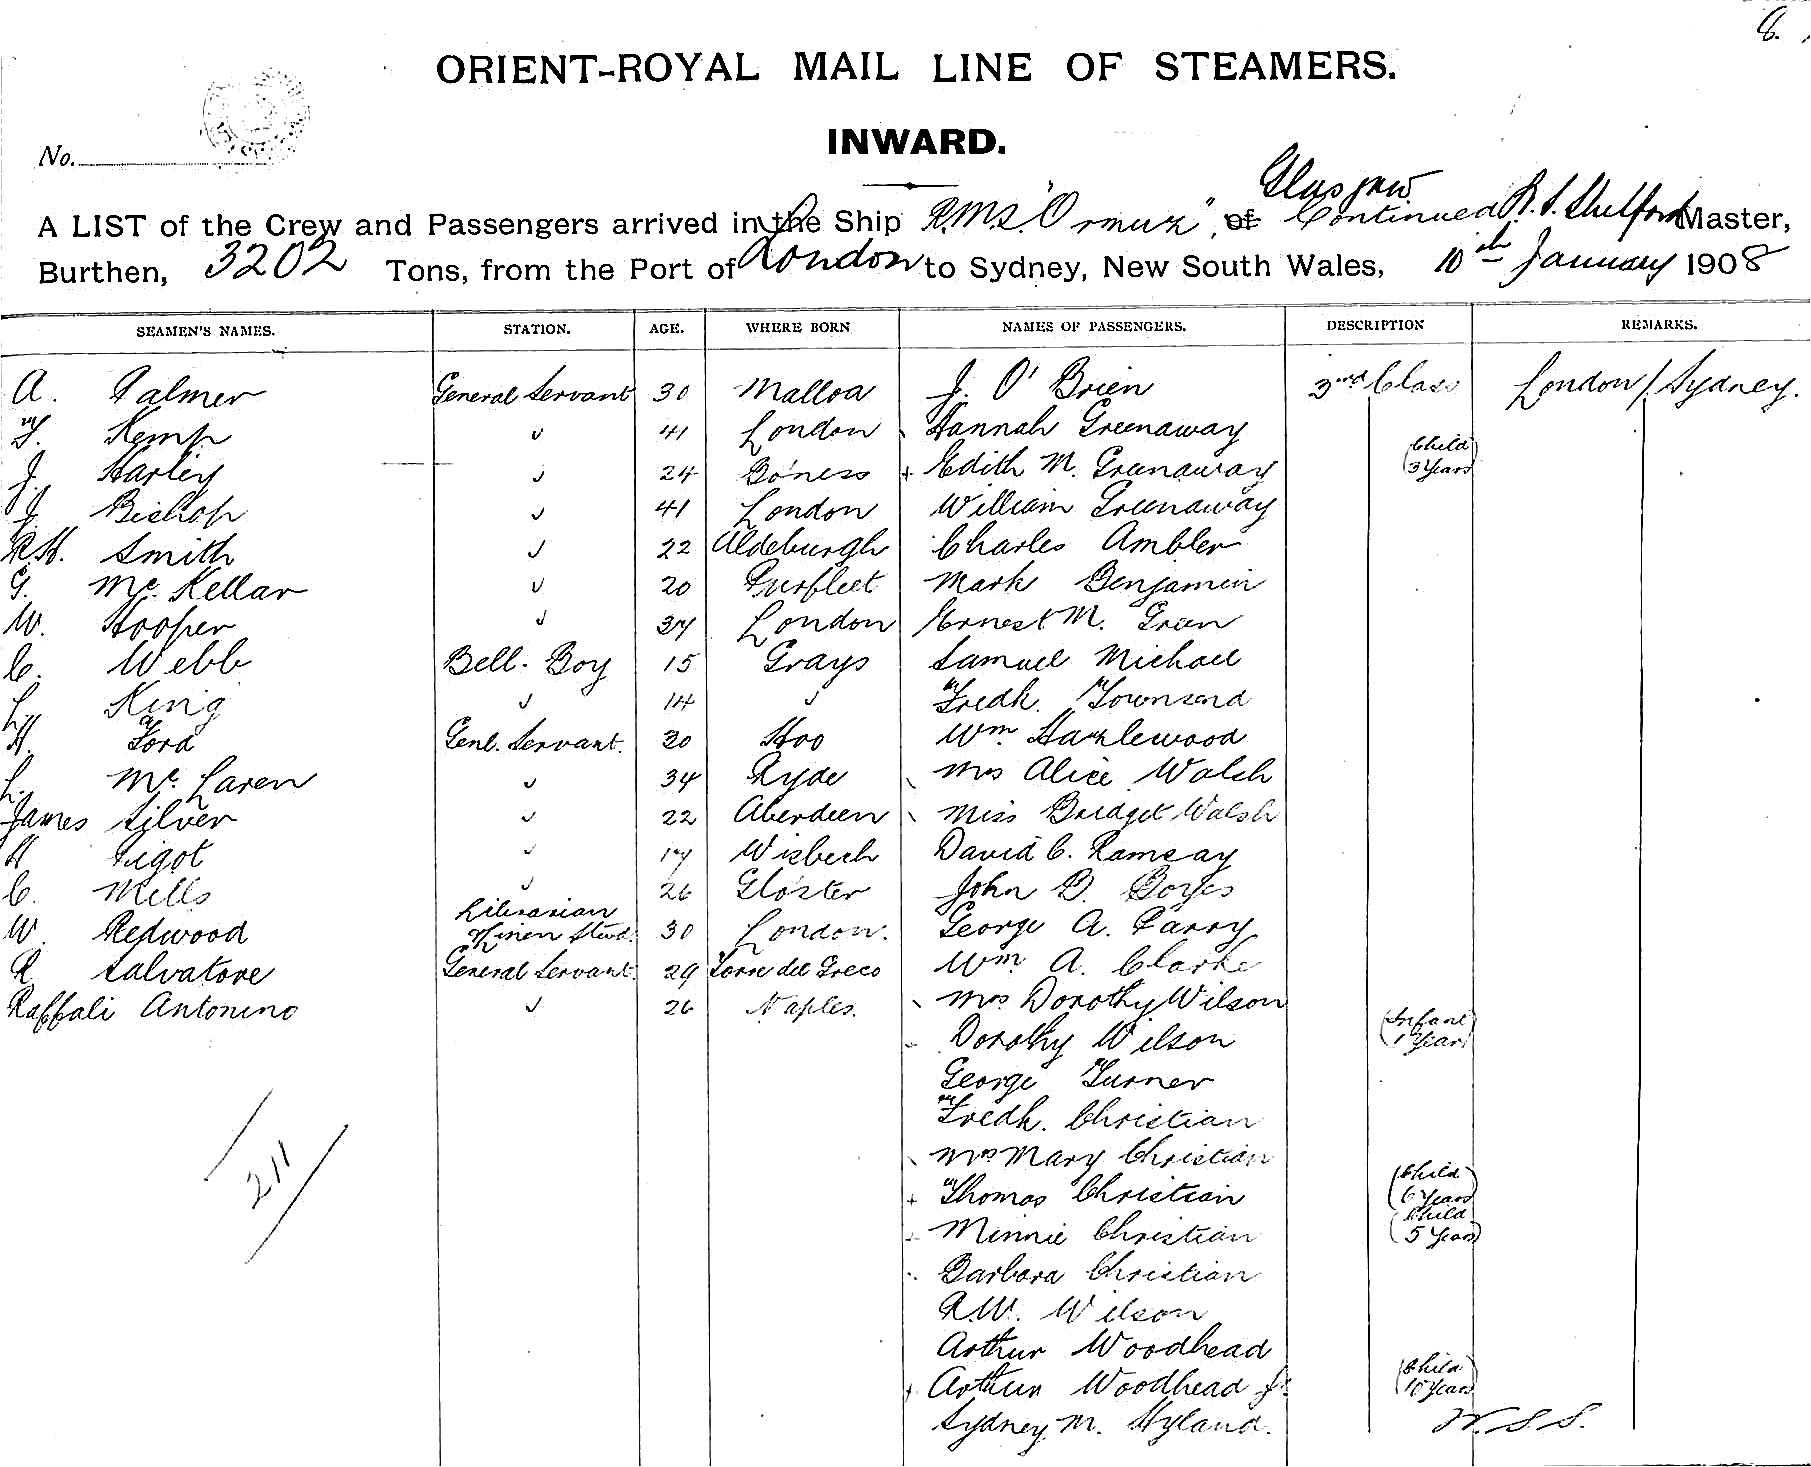 8.
ORIENT-ROYAL MAIL LINE OF STEAMERS.
INWARD.
No.
Glasgow
A LIST of the Crew and Passengers arrived in the Ship R.M.S. "Ormuz", of Continued R. S. Shelford Master,
Burthen, 3202 Tons, from the Port of London to Sydney, New South Wales, 10th January 1908
SEAMEN'S NAMES. STATION. AGE. WHERE BORN NAMES OF PASSENGERS. DESCRIPTION REMARKS.
A. Palmer General Servant 30 Malloa J. O'Brien 3rd Class London / Sydney.
T. Kemp √ 41 London Hannah Greenaway
J. Harley √ 24 Bo'ness + Edith M. Greenaway (Child 3 Years)
J. Bishop √ 41 London William Greenaway
R.H. Smith √ 22 Aldeburgh Charles Ambler
G. McKellar √ 20 Purfleet Mark Benjamin
W. Hooper √ 37 London Ernest M. Green
C. Webb Bell-Boy 15 Grays Samuel Michael
L. King √ 14 √ Fredk. Townsend
H. Ford Genl. Servant. 30 Hoo Wm Hazlewood
L. McLaren √ 34 Ryde Mrs Alice Walsh
James Silver √ 22 Aberdeen Miss Bridget Walsh
H Pigot √ 17 Wisbech David C. Ramsay
C. Mills √ 26 Gloster John D. Boyes
W. Redwood Librarian Linen Stwd. 30 London. George A. Parry
R Salvatore General Servant. 29 Torre del Greco Wm A. Clarke
Raffali Antonino √ 26 Naples. Mrs Dorothy Wilson
Dorothy Wilson (Infant 1 Year)
George Turner
Fredk. Christian
Mrs Mary Christian
+ Thomas Christian (Child 6 Years)
+ Minnie Christian (Child 5 Years)
Barbara Christian
R.W. Wilson
Arthur Woodhead
+ Arthur Woodhead Jr (Child 10 Years)
Sydney M. Hyland.
211
W.S.S.